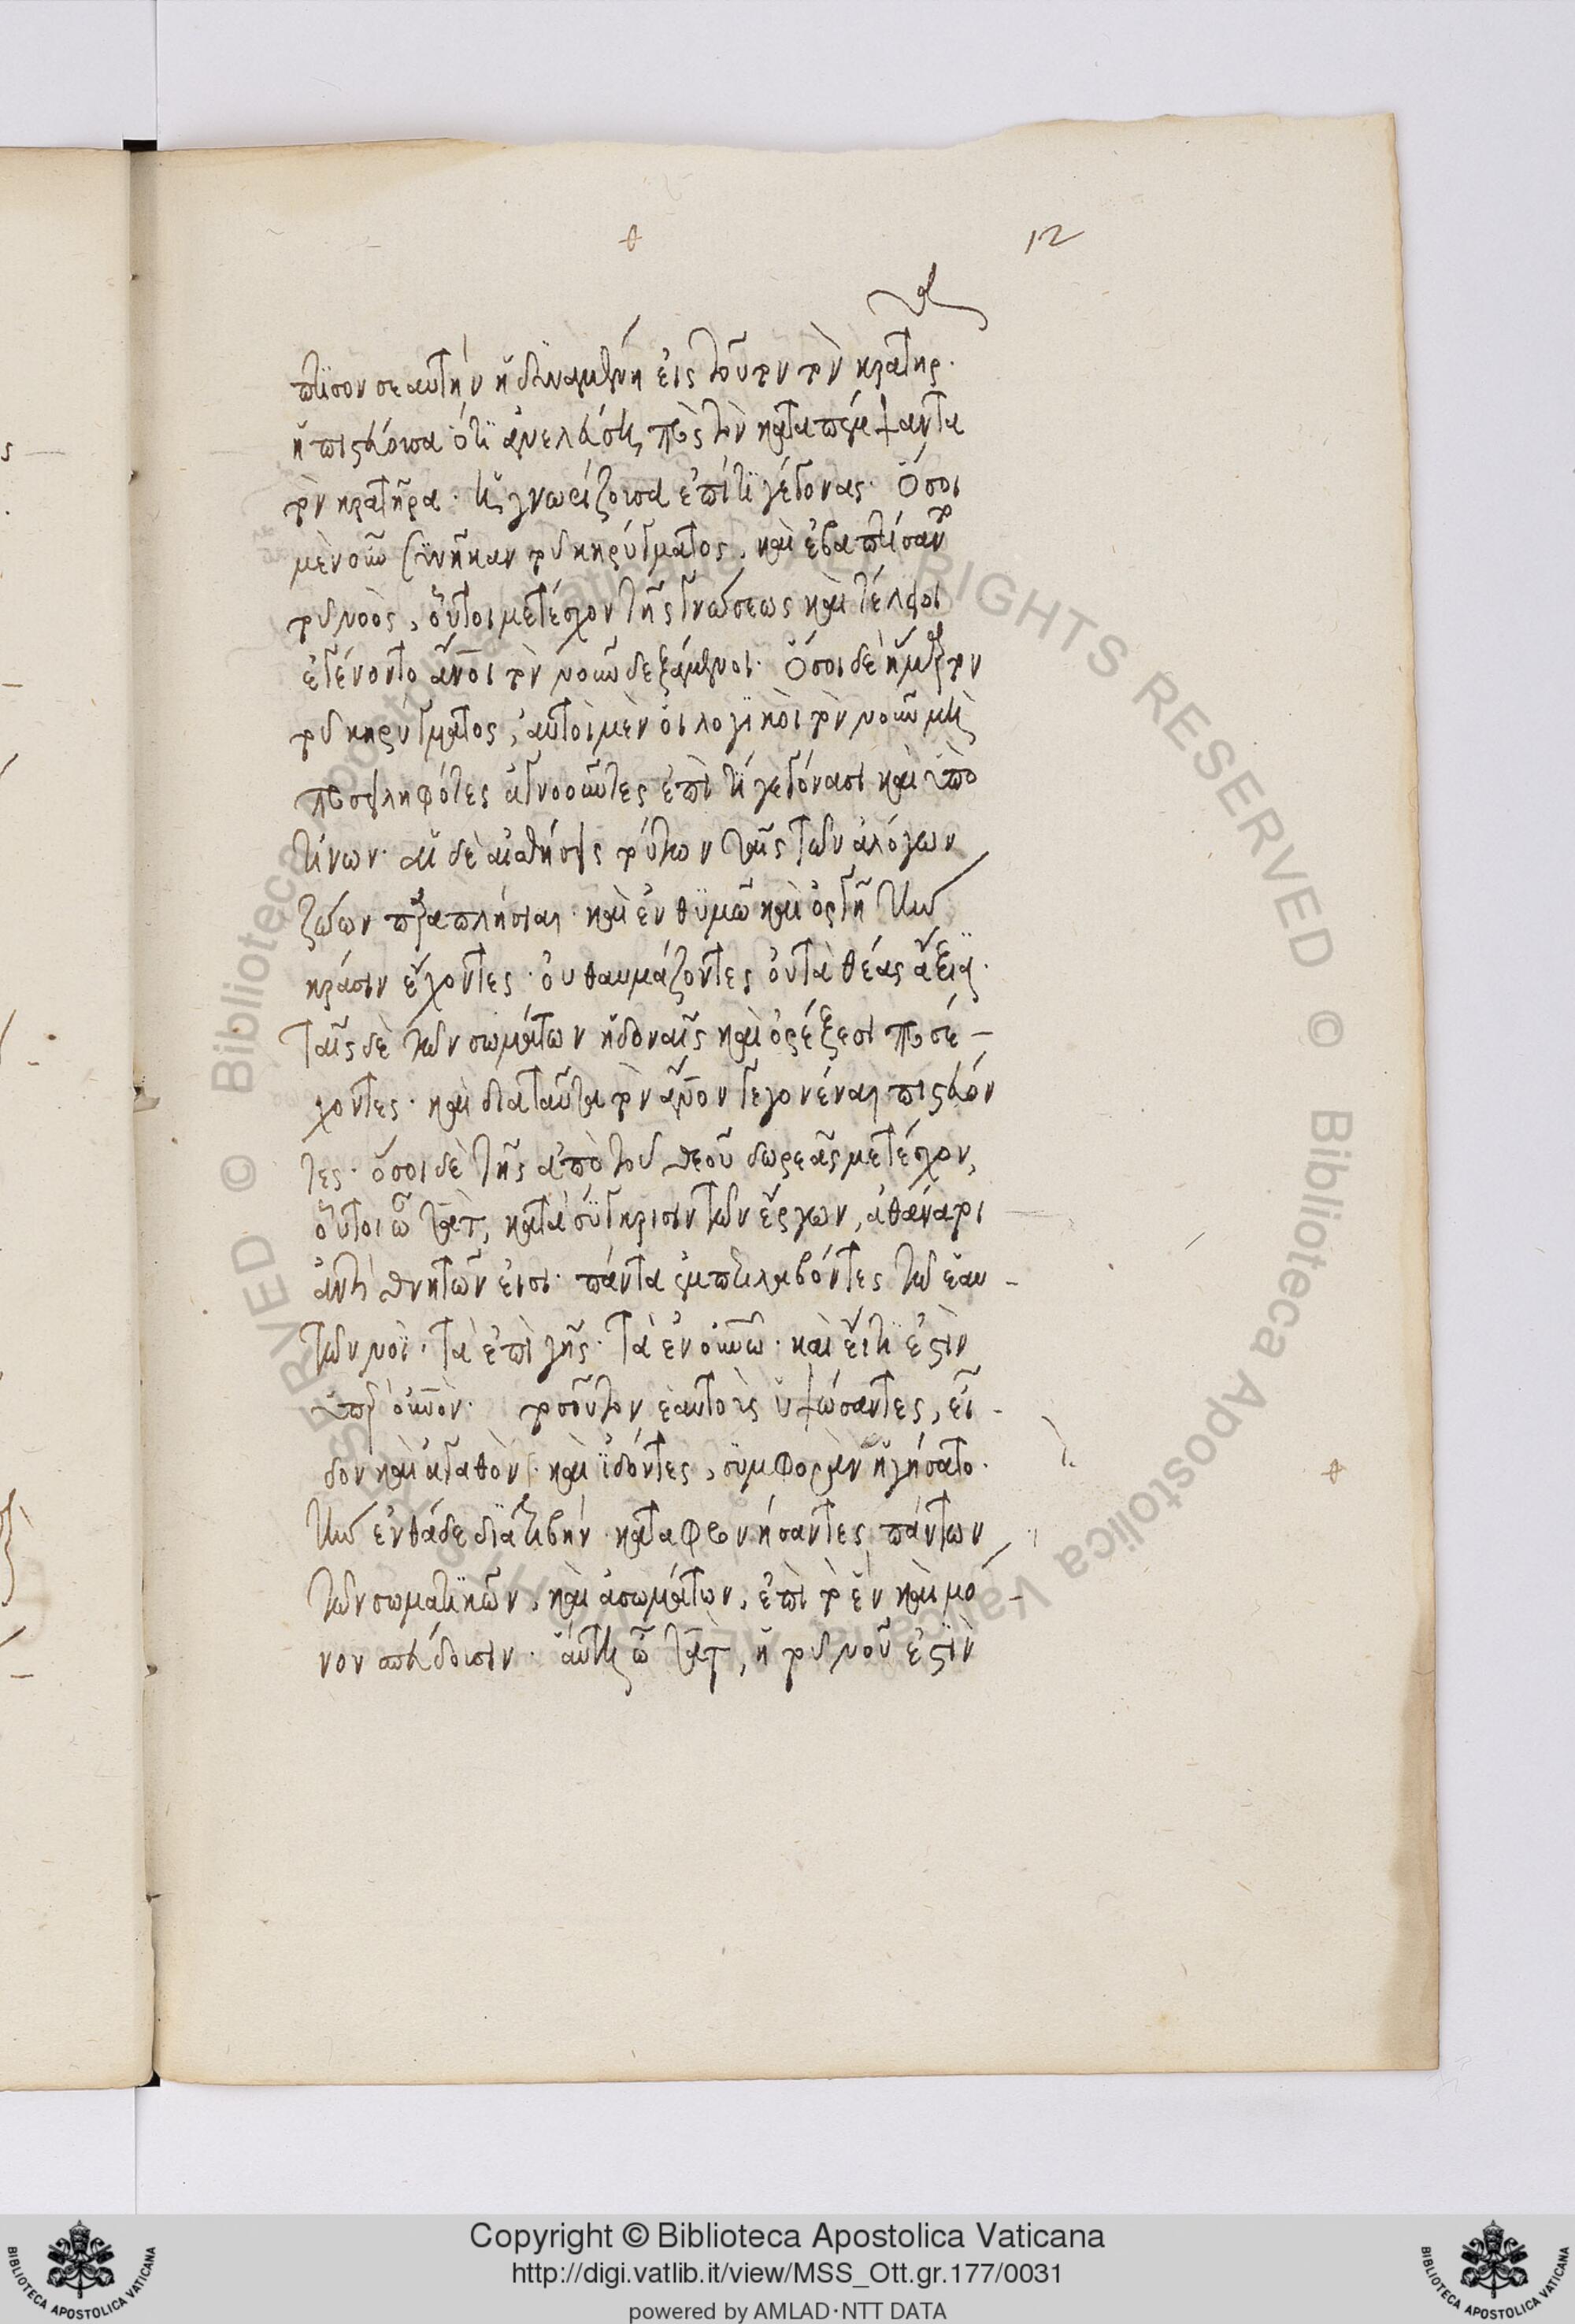 12
πτισον σεαυτὴν ἡ δυναμένη εἰς τοῦτον τὸν κρατῆρ.
ἡ πιστεύουσα ὅτι ἀνελεύσῃ πρὸς τὸν καταπέμψαντα
τὸν κρατῆρα. ἡ γνωρίζουσα ἐπὶ τί γέγονας. Ὅσοι
μὲν οὖν συνῆκαν τοῦ κηρύγματος, καὶ ἐβαπτίσαντο
τοῦ νοὸς, οὗτοι μετέσχον τῆς γνώσεως καὶ τέλειοι
ἐγένοντο ἄνοι τὸν νοῦν δεξάμενοι. Ὅσοι δὲ ἥμαρτον
τοῦ κηρύγματος, αὐτοὶ μὲν οἱ λογικοὶ τὸν νοῦν μὴ
προσειληφότες ἀγνοοῦντες ἐπὶ τί γεγόνασι καὶ ὑπὸ
τίνων. αἱ δὲ αἰσθήσεις τούτων ταῖς τῶν ἀλόγων
ζώων παραπλήσιαι. καὶ ἐν θυμῶ καὶ ὀργῆ τὴν
κράσιν ἔχοντες. οὐ θαυμάζοντες οὐ τὰ θέας ἄξια.
ταῖς δὲ τῶν σωμάτων ἡδοναῖς καὶ ὀρέξεσι προσέ-
χοντες. καὶ διὰ ταῦτα τὸν ἄνον γεγονέναι πιστεύον
τες. ὅσοι δὲ τῆς ἀπὸ τοῦ θεοῦ δωρεᾶς μετέσχον,
οὗτοι ὦ τὰτ, κατὰ σύγκρισιν τῶν ἔργων, ἀθάνατοι
ἀντὶ θνητῶν εἰσι. πάντα ἐμπεριλαβόντες τῶ ἑαυ-
τῶν νοῒ. τὰ ἐπὶ γῆς. τὰ ἐν οὐνῶ. καὶ εἴ τι ἐστὶν
ὑπὲρ οὐνόν. τοσοῦτον ἑαυτοὺς ὑψώσαντες, εἶ-
δον καὶ ἀγαθὸν. καὶ ἰδόντες, συμφορὰν ἡγήσατο.
τὴν ἐνθάδε διατριβήν. καταφρονήσαντες πάντων
τῶν σωματικῶν, καὶ ἀσωμάτων, ἐπὶ τὸ ἓν καὶ μό-
νον σπεύδουσιν. αὕτη ὦ τὰτ, ἡ τοῦ νοῦ ἐστὶν
Copyright © Biblioteca Apostolica Vaticana
http://digi.vatlib.it/view/MSS_Ott.gr.177/0031
powered by AMLAD·NTT DATA